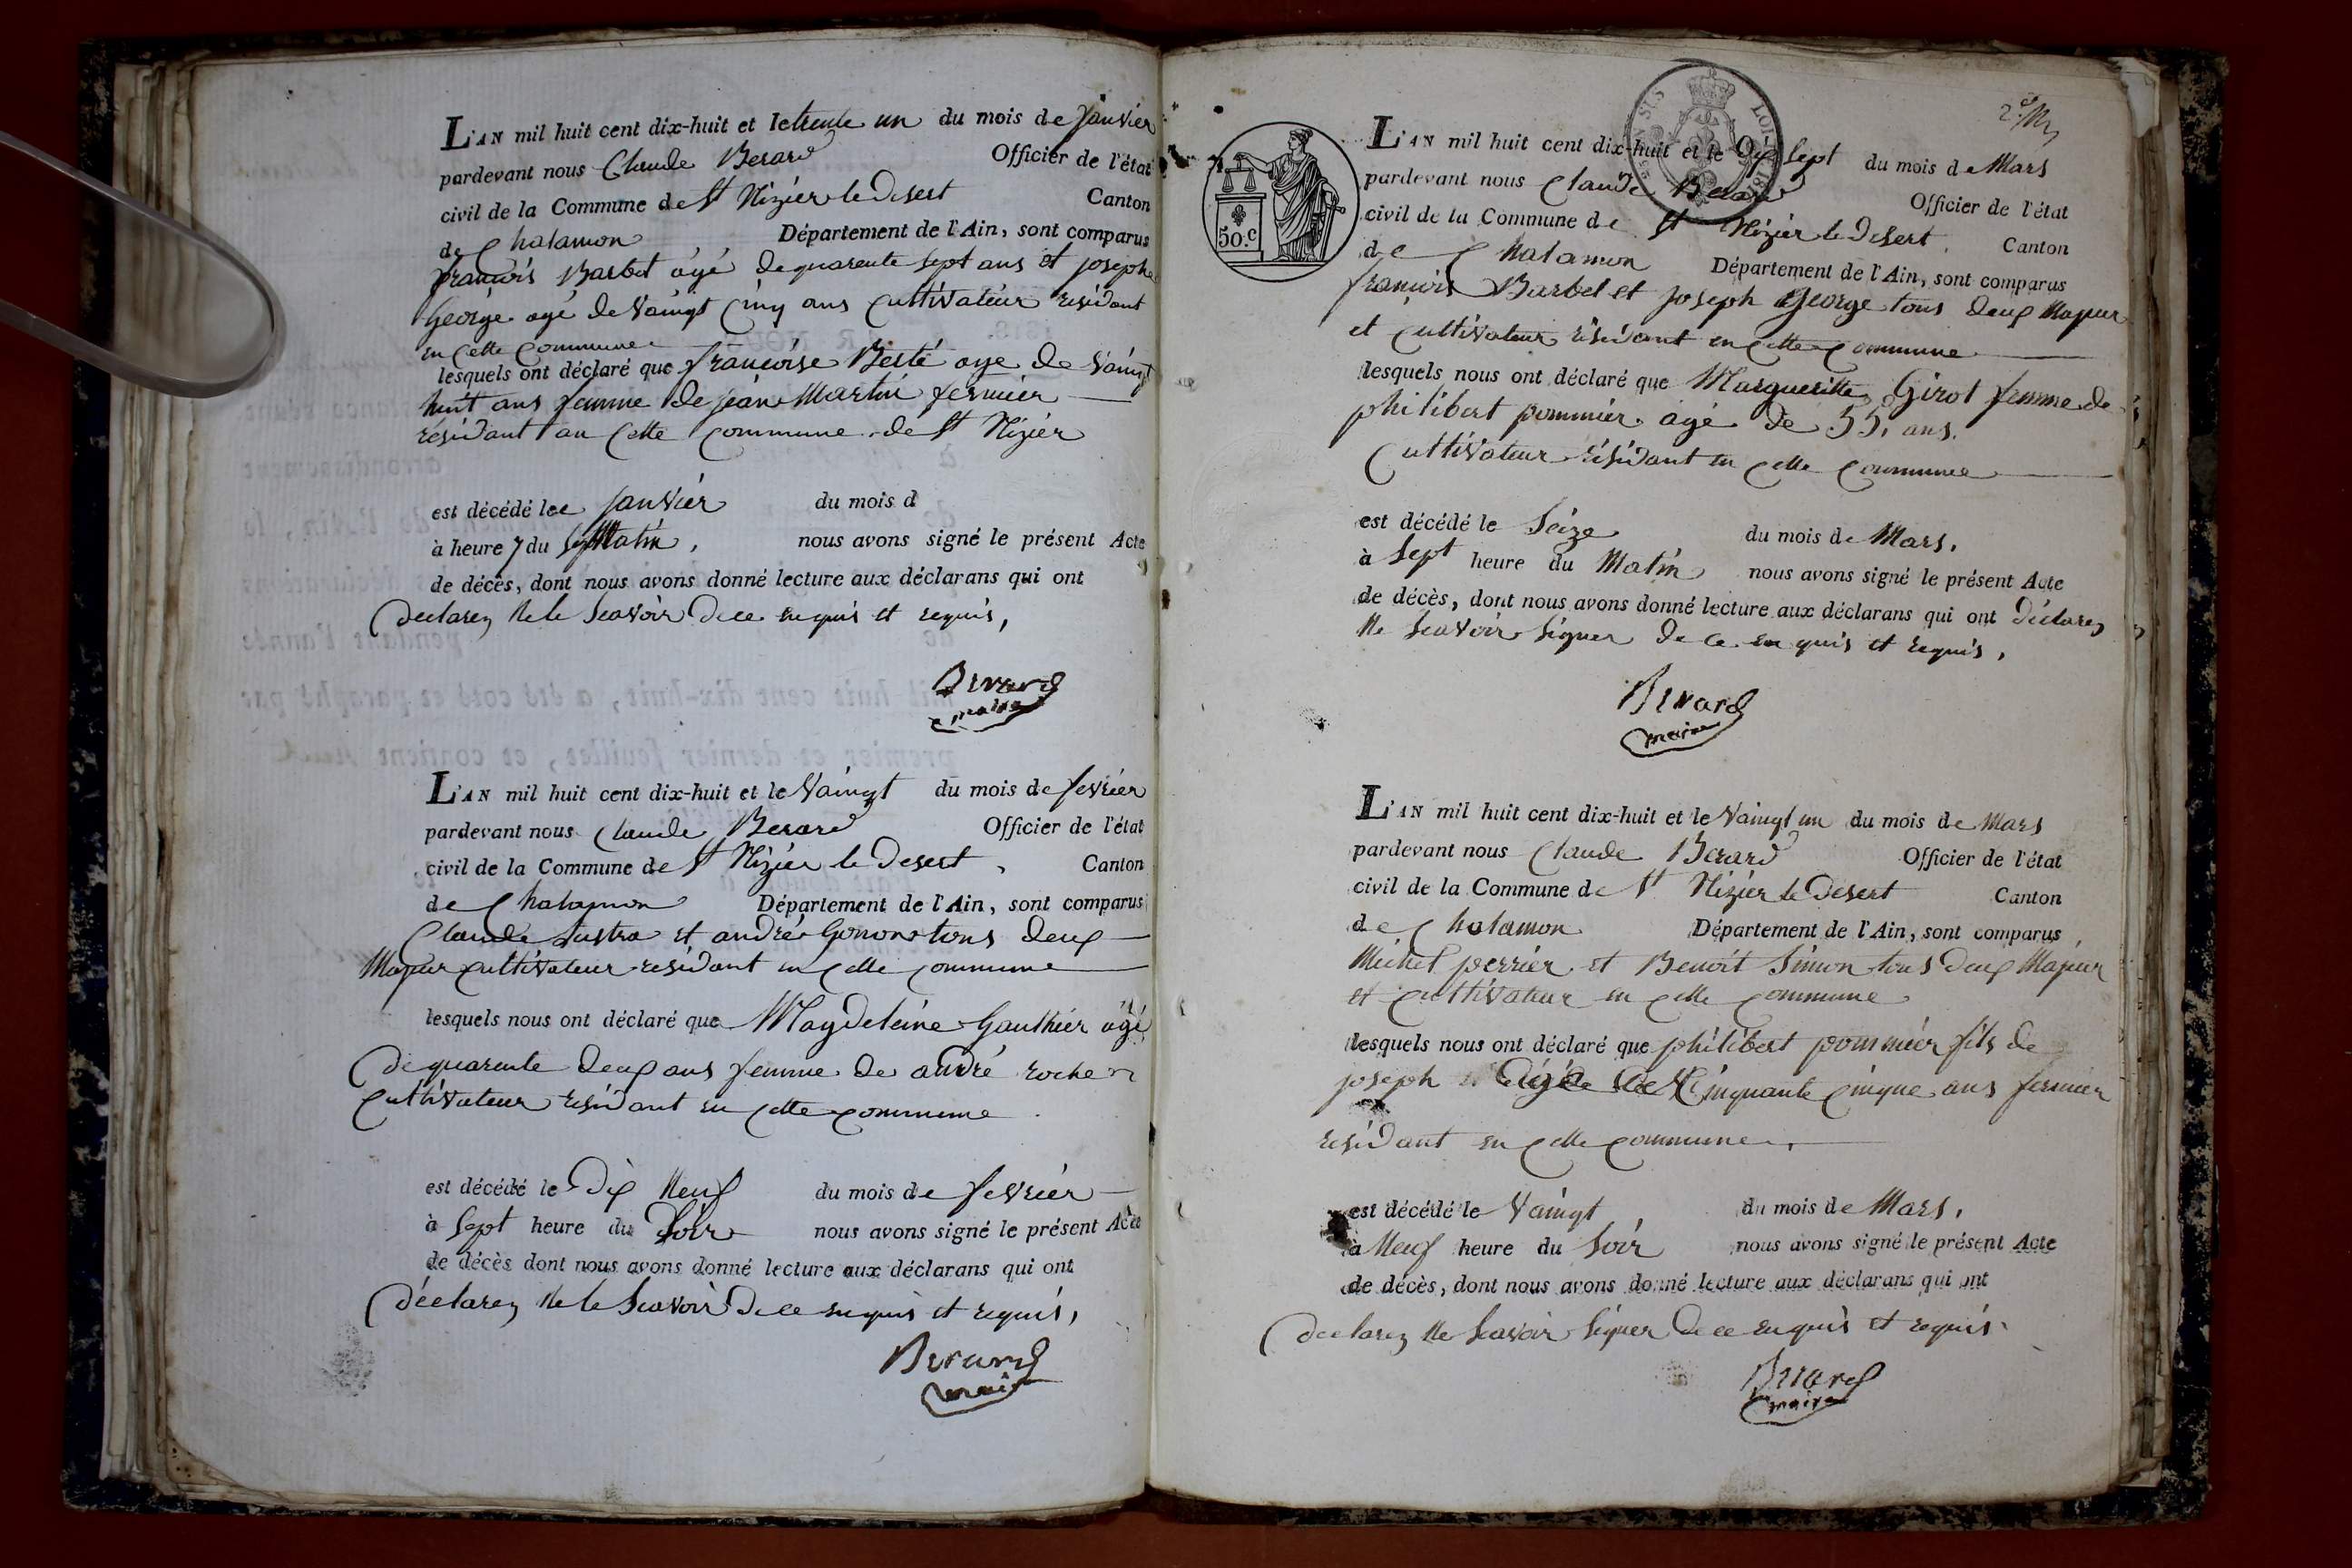 L'AN mil huit cent dix-huit et le trente un du mois de janvier
pardevant nous Claude Berard Officier de l'état
civil de la Commune de St Nizier le Desert Canton
de Chalamon Département de l'Ain, sont comparus
francois Barbet agé de quarente sept ans et joseph
George agé de Vaingt Cinq ans Cultivateur residant
en Cette Commune
lesquels ont déclaré que francoise Berté age de Vaingt
huit ans femme de jean Martin fermier
résidant au Cette Commune de St Nizier
est décédé le janvier du mois d
à heure 7 du Matin, nous avons signé le présent Acte
de décès, dont nous avons donné lecture aux déclarans qui ont
Declarez Ne le Scavoir de ce enquis et requis,
Berard
maire
L'AN mil huit cent dix-huit et le Vaingt du mois de fevrier
pardevant nous Claude Berard Officier de l'état
civil de la Commune de St Nizier le Desert, Canton
de Chalamon Département de l'Ain, sont comparus
Claude Lustra et andré Gonon tous deux
Majeur Cultivateur residant en Cette Commune
lesquels nous ont déclaré que Magdeleine Gauthier agé
de quarente deux ans femme de andré roche
Cultivateur residant en Cette Commune
est décédé le Dix Neuf du mois de fevrier
à Sept heure du Soir nous avons signé le présent Acte
de décès dont nous avons donné lecture aux déclarans qui ont
déclarez Ne le Scavoir de ce enquis et requis,
Berard
maire
2e
50.c
LOI 1816
L'AN mil huit cent dix-huit et le Dix Sept du mois de Mars
pardevant nous Claude Berard Officier de l'état
civil de la Commune de St Nizier le Desert, Canton
de Chalamon Département de l'Ain, sont comparus
francois Barbet et joseph George tous deux Majeur
et Cultivateur residant en Cette Commune
lesquels nous ont déclaré que Margueritte Girot femme de
philibert pommier agé de 55, ans.
Cultivateur residant en Cette Commune
est décédé le Seize du mois de Mars,
à Sept heure du Matin nous avons signé le présent Acte
de décès, dont nous avons donné lecture aux déclarans qui ont déclarez
Ne Scavoir Signer de ce enquis et requis,
Berard
maire
L'AN mil huit cent dix-huit et le Vaingt un du mois de Mars
pardevant nous Claude Berard Officier de l'état
civil de la Commune de St Nizier le Desert Canton
de Chalamon Département de l'Ain, sont comparus
Michel perrier et Benoit Simon tous deux Majeur
et Cultivateur en Cette Commune
lesquels nous ont déclaré que philibert pommier fils de
joseph agé de Cinquante Cinque ans fermier
residant en Cette Commune,
est décédé le Vaingt du mois de Mars,
à Neuf heure du Soir nous avons signé le présent Acte
de décès, dont nous avons donné lecture aux déclarans qui ont
declarez Ne Scavoir Signer de ce enquis et requis.
Berard
maire